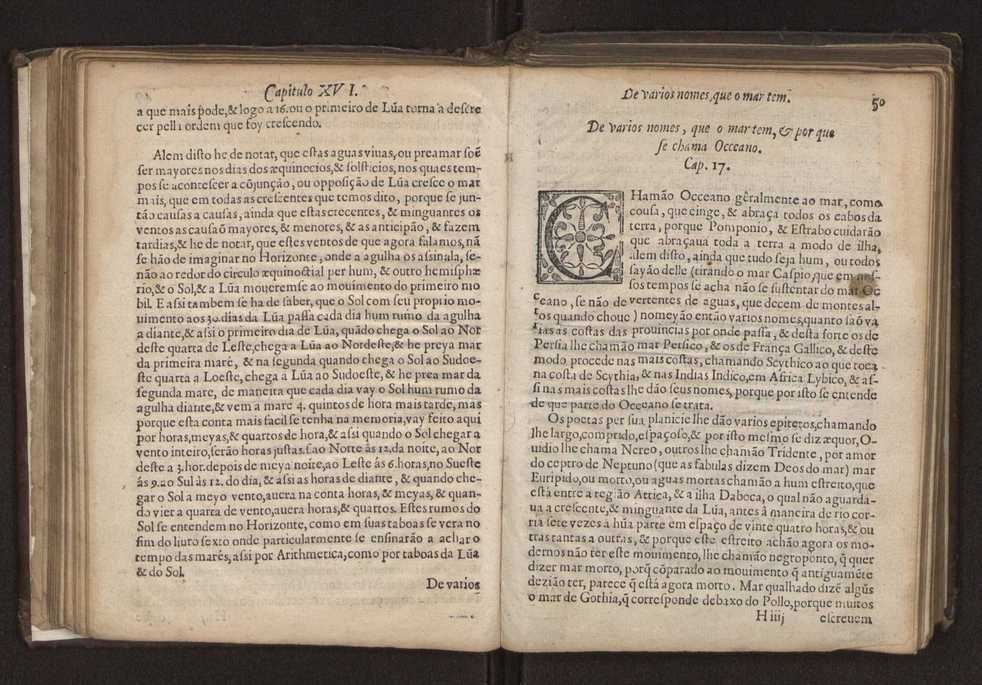 Capitulo XVI.
a que mais pode,& logo a 16.ou o primeiro de Lũa torna a deſcre
cer pella ordem que foy creſcendo.
Alem diſto he de notar, que eſtas aguas viuas, ou preamar ſoẽ
ſer mayores nos dias dos æquinocios,& ſolſticios, nos quaes tem-
pos ſe aconteſcer a cõjunção, ou oppoſição de Lũa creſce o mar
mais, que em todas as creſcentes que temos dito, porque ſe jun-
tão cauſas a cauſas, ainda que eſtas crecentes, & minguantes os
ventos as cauſaõ mayores, & menores, & as anticipão, & fazem
tardias,& he de notar, que eſtes ventos de que agora falamos, nã
ſe hão de imaginar no Horizonte, onde a agulha os aſsinala, ſe-
não ao redor do circulo æquinoctial per hum, & outro hemiſphæ
rio,& o Sol,& a Lũa moueremſe ao mouimento do primeiro mo
bil. E aſsi tambem ſe ha de ſaber, que o Sol com ſeu proprio mo-
uimento aos 30.dias da Lũa paſſa cada dia hum rumo da agulha
a diante,& aſsi o primeiro dia de Lũa, quãdo chega o Sol ao Nor
deſte quarta de Leſte,chega a Lũa ao Nordeſte,& he preya mar
da primeira maré, & na ſegunda quando chega o Sol ao Sudoe-
ſte quarta a Loeſte, chega a Lũa ao Sudoeſte, & he prea mar da
ſegunda mare, de maneira que cada dia vay o Sol hum rumo da
agulha diante,& vem a maré 4. quintos de hora mais tarde, mas
porque eſta conta mais facil ſe tenha na memoria, vay feito aqui
por horas,meyas,& quartos de hora,& aſsi quando o Sol chegar a
vento inteiro, ſerão horas juſtas.ſ.ao Norte às 12.da noite, ao Nor
deſte a 3.hor.depois de meya noite,ao Leſte ás 6.horas,no Sueſte
ás 9.ao Sul às 12. do dia, & aſsi as horas de diante, & quando che-
gar o Sol a meyo vento,auera na conta horas,& meyas, & quan-
do vier a quarta de vento,auera horas,& quartos. Eſtes rumos do
Sol ſe entendem no Horizonte, como em ſuas taboas ſe vera no
fim do liuro ſexto onde particularmente ſe enſinarão a achar o
tempo das marés, aſsi por Arithmetica, como por taboas da Lũa
& do Sol.
De varios
De varios nomes,que o mar tem.
50
De varios nomes, que o mar tem, & por que
ſe chama Occeano.
Cap. 17.
CHamão Occeano gêralmente ao mar, como
couſa, que cinge, & abraça todos os cabos da
terra, porque Pomponio, & Eſtrabo cuidarão
que abraçaua toda a terra a modo de ilha,
alem diſto, ainda que tudo ſeja hum, ou todos
ſayão delle (tirando o mar Caſpio,que em noſ-
ſos tempos ſe acha não ſe ſuſtentar do mar Oc
ceano, ſe não de vertentes de aguas, que decem de montes al-
tos quando choue) nomeyão então varios nomes,quanto ſaõ va
rias as coſtas das prouincias por onde paſſa, & deſta forte os de
Perſia lhe chamão mar Perſico, & os de França Gallico, & deſte
modo procede nas mais coſtas, chamando Scythico ao que toca
na coſta de Scythia, & nas Indias Indico,em Africa Lybico, & aſ-
ſi nas mais coſtas lhe dão ſeus nomes, porque por iſto ſe entende
de que parte do Occeano ſe trata.
Os poetas per ſua planicie lhe dão varios epitetos,chamando
lhe largo,comprido,eſpaçoſo,& por iſto meſmo ſe diz æquor, O-
uidio lhe chama Nereo, outros lhe chamão Tridente, por amor
do ceptro de Neptuno (que as fabulas dizem Deos do mar) mar
Euripido,ou morto,ou aguas mortas chamão a hum eſtreito,que
eſtá entre a região Attica,& a ilha Daboca, o qual não aguarda-
ua a creſcente,& minguante da Lũa, antes à maneira de rio cor-
ria ſete vezes à hũa parte em eſpaço de vinte quatro horas,& ou
tras tantas a outras, & porque eſte eſtreito achão agora os mo-
dernos não ter eſte mouimento, lhe chamão negroponto, q̃ quer
dizer mar morto, porq̃ cõparado ao mouimento q̃ antiguamẽte
dezião ter, parece q̃ eſtá agora morto. Mar qualhado dizẽ algũs
o mar de Gothia,q̃ correſponde debaxo do Pollo,porque muitos
H iiij
eſcreuem